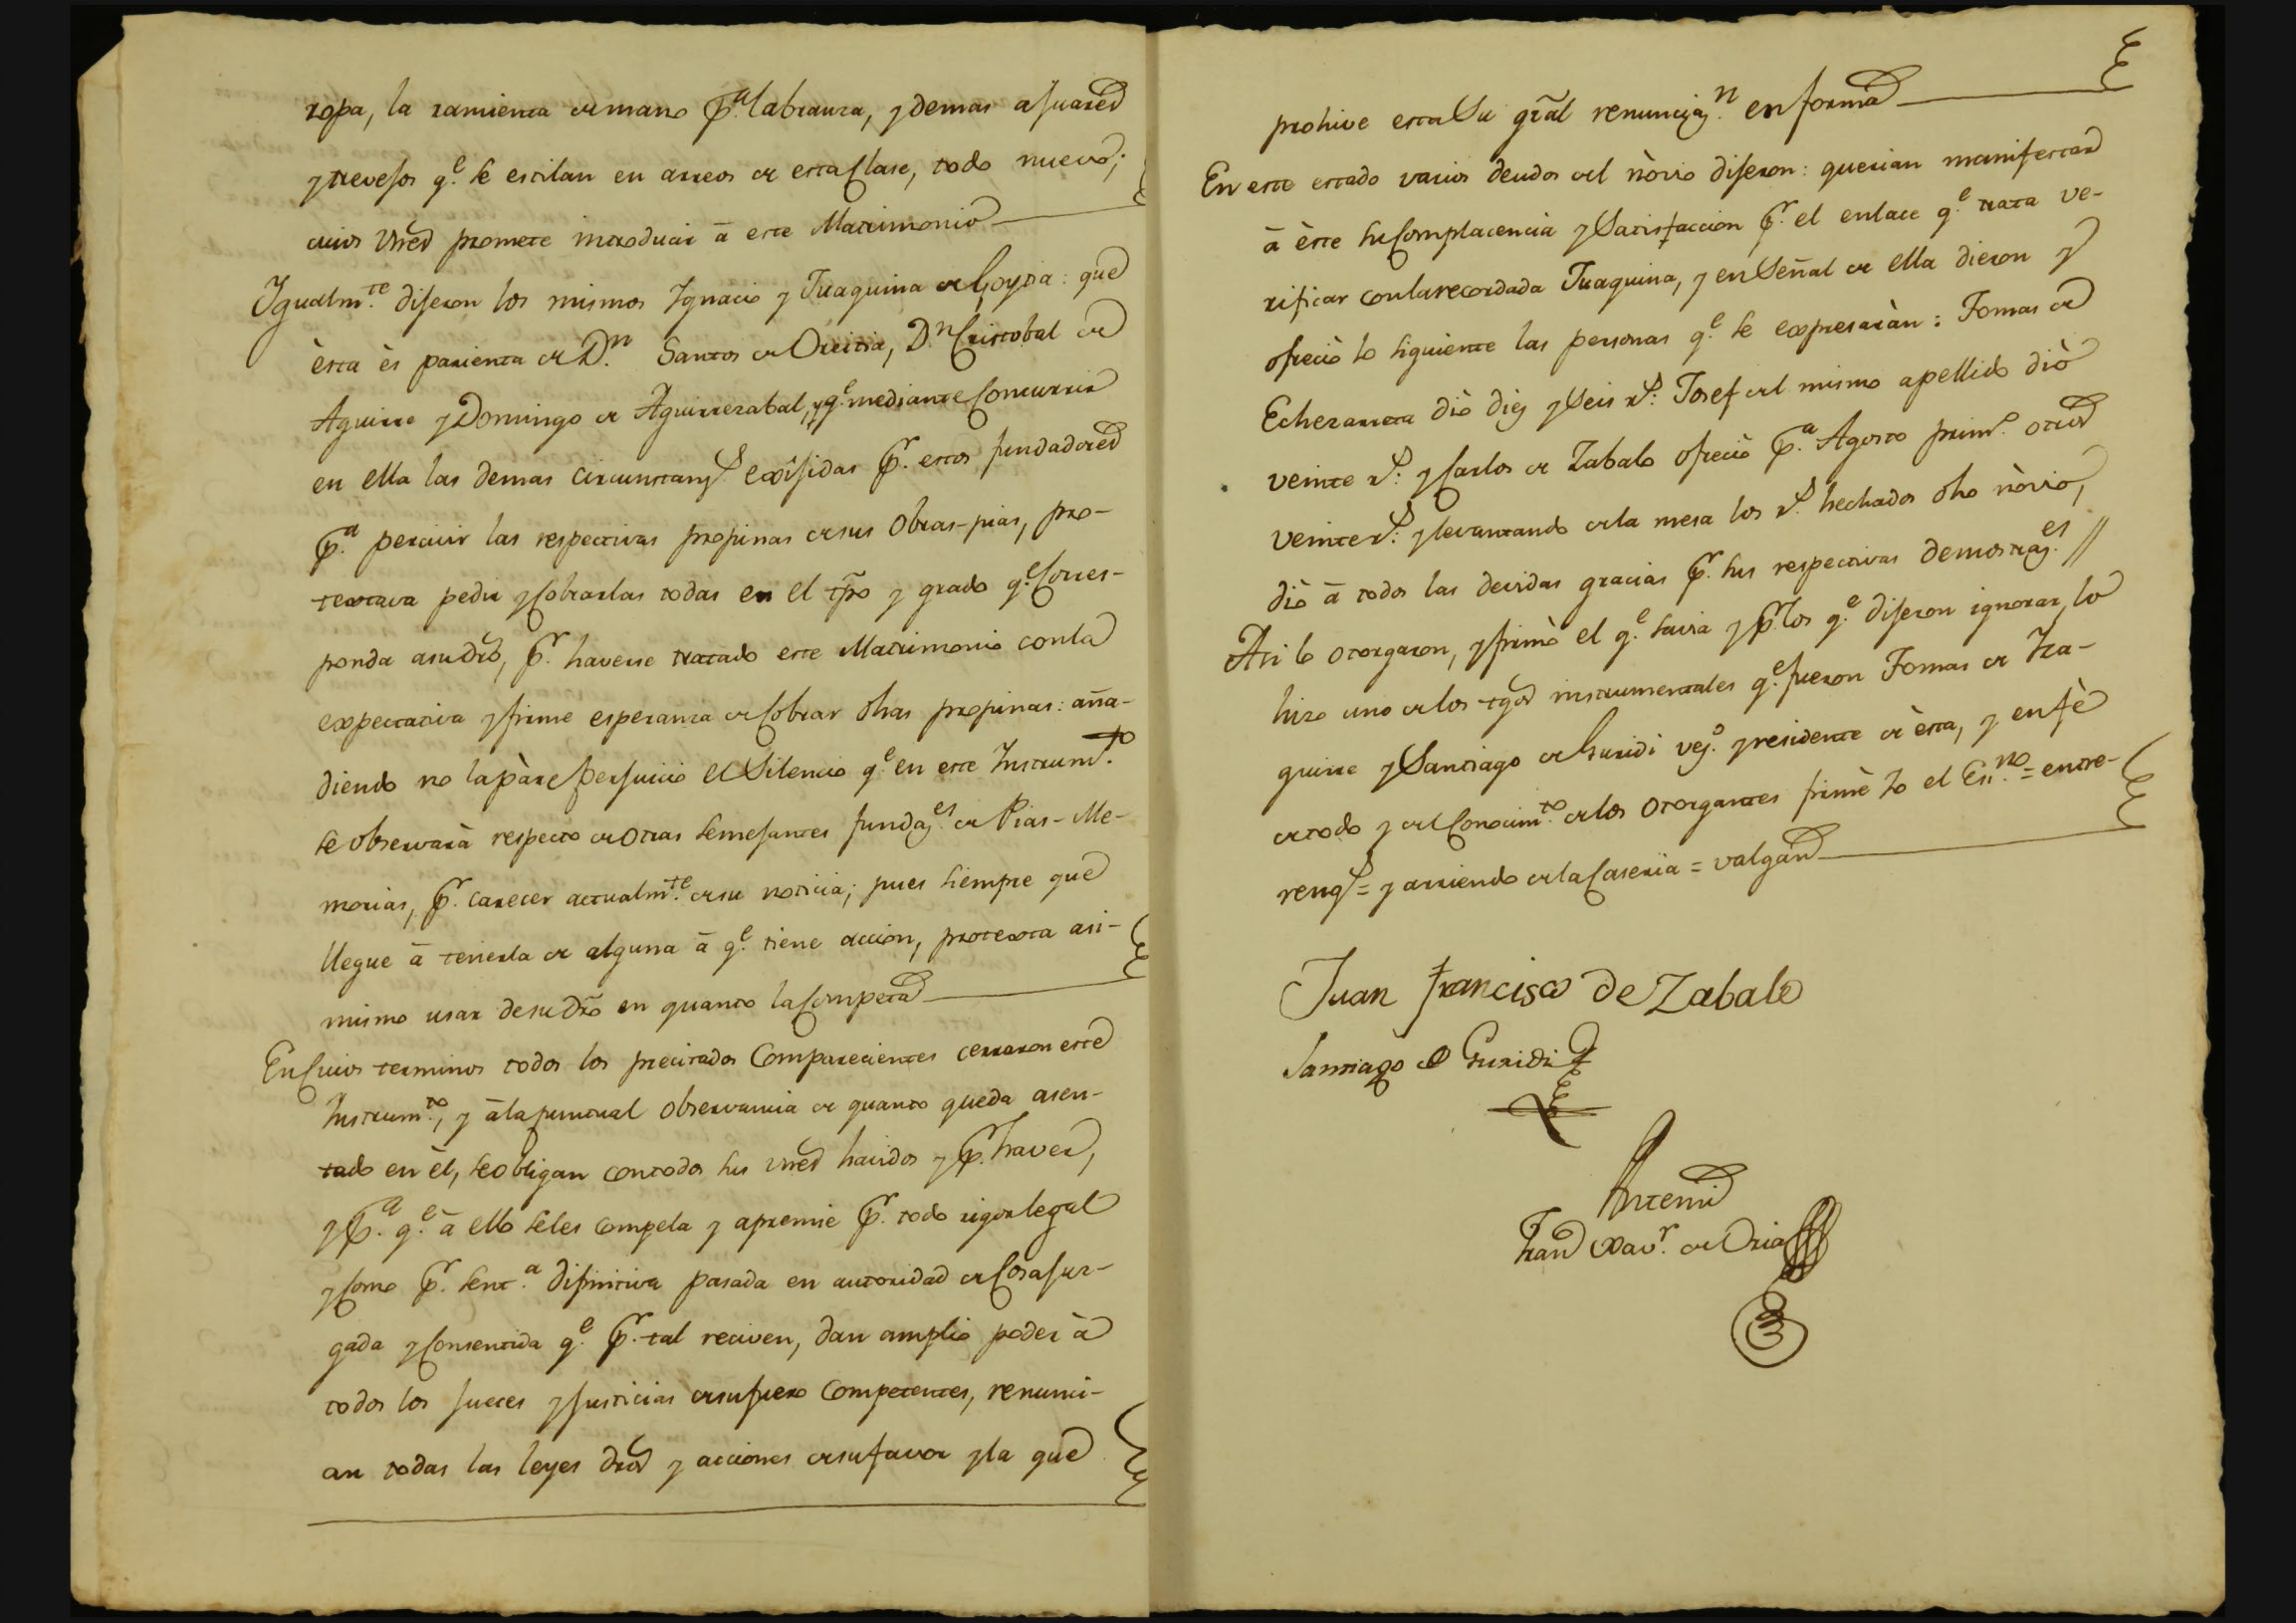 ropa, la ramienta de mano p.ª labranza, y demas afuares
y trevejos q.e se estilan en arreos de esta Clase, todo nuevo;
cuios vnes promete introducir â este Matrimonio
Igualm.te dijeron los mismos Ignacio y Juaquina de Goytia: que
èsta ès parienta de D.n Santos de Oreitia, D.n Cristobal de
Aguirre y Domingo de Aguirrezabal, y q.e mediante Concurrir
en ella las demas circunstanz.s exîjidas p.r estos fundadores
p.ª percivir las respectivas propinas de sus Obras-pias, pro-
textava pedir y Cobrarlas todas en el tpo y grado q.e Corres-
ponda a su dro, p.r haverse tratado este Matrimonio con la
expectativa y firme esperanza de Cobrar dhas propinas: aña-
diendo no la pàre perjuicio el Silencio q.e en este Instrum.to
se observarà respecto de otras semejantes fundaz.es de Pias-Me-
morias, p.r carecer actualm.te de su noticia; pues siempre que
llegue â tenerla de alguna â q.e tiene accion, protexta asi-
mismo usar de su dro en quanto la Competa
En Cuios terminos todos los precitados Comparecientes cerraron este
Instrum.to, y â la puntual observancia de quanto queda asen-
tado en èl, se obligan con todos sus vnes havidos y p.r haver,
y p.ª q.e â ello se les compela y apremie p.r todo rigor legal
y Como p.r sent.ª difinitiva pasada en autoridad de Cosa juz-
gada y Consentida q.e p.r tal reciven, dan amplio poder à
todos los jueces y justicias de su fuero Competentes, renunci-
an todas las leyes dros y acciones de su favor y la que
prohive esta Su gral renunciaz.n en forma
En este estado varios deudos del nòvio dijeron: querian manifestar
â èste su Complacencia y Satisfaccion p.r el enlace q.e trata ve-
rificar con la recordada Juaquina, y en Señal de ella dieron y
ofreciò lo siguiente las personas q.e se expresaràn: Tomas de
Echezarreta diò diez y Seis r.s: Josef del mismo apellido diò
veinte r.s: y Carlos de Zabalo ofreciò p.ª Agosto prim.o otros
veinte r.s: y levantando de la mesa los r.s hechados dho nòvio,
diò â todos las devidas gracias p.r sus respectivas demostraz.es //
Asi lo otorgaron, y firmò el q.e savia y p.r los q.e dijeron ignorar, lo
hizo uno de los tgos instrumentales q.e fueron Tomas de Iza-
guirre y Santiago de Guridi vez.o y residente de èsta, y en fè
de todo y del Conocim.to de los otorgantes firmè Yo el Es.no = entre-
reng.s = y arriendo de la Caseria = valgan
Juan francisco de Zabalo
Santiago de Guridi
Antemi
Fran.co Xav.r de Oria